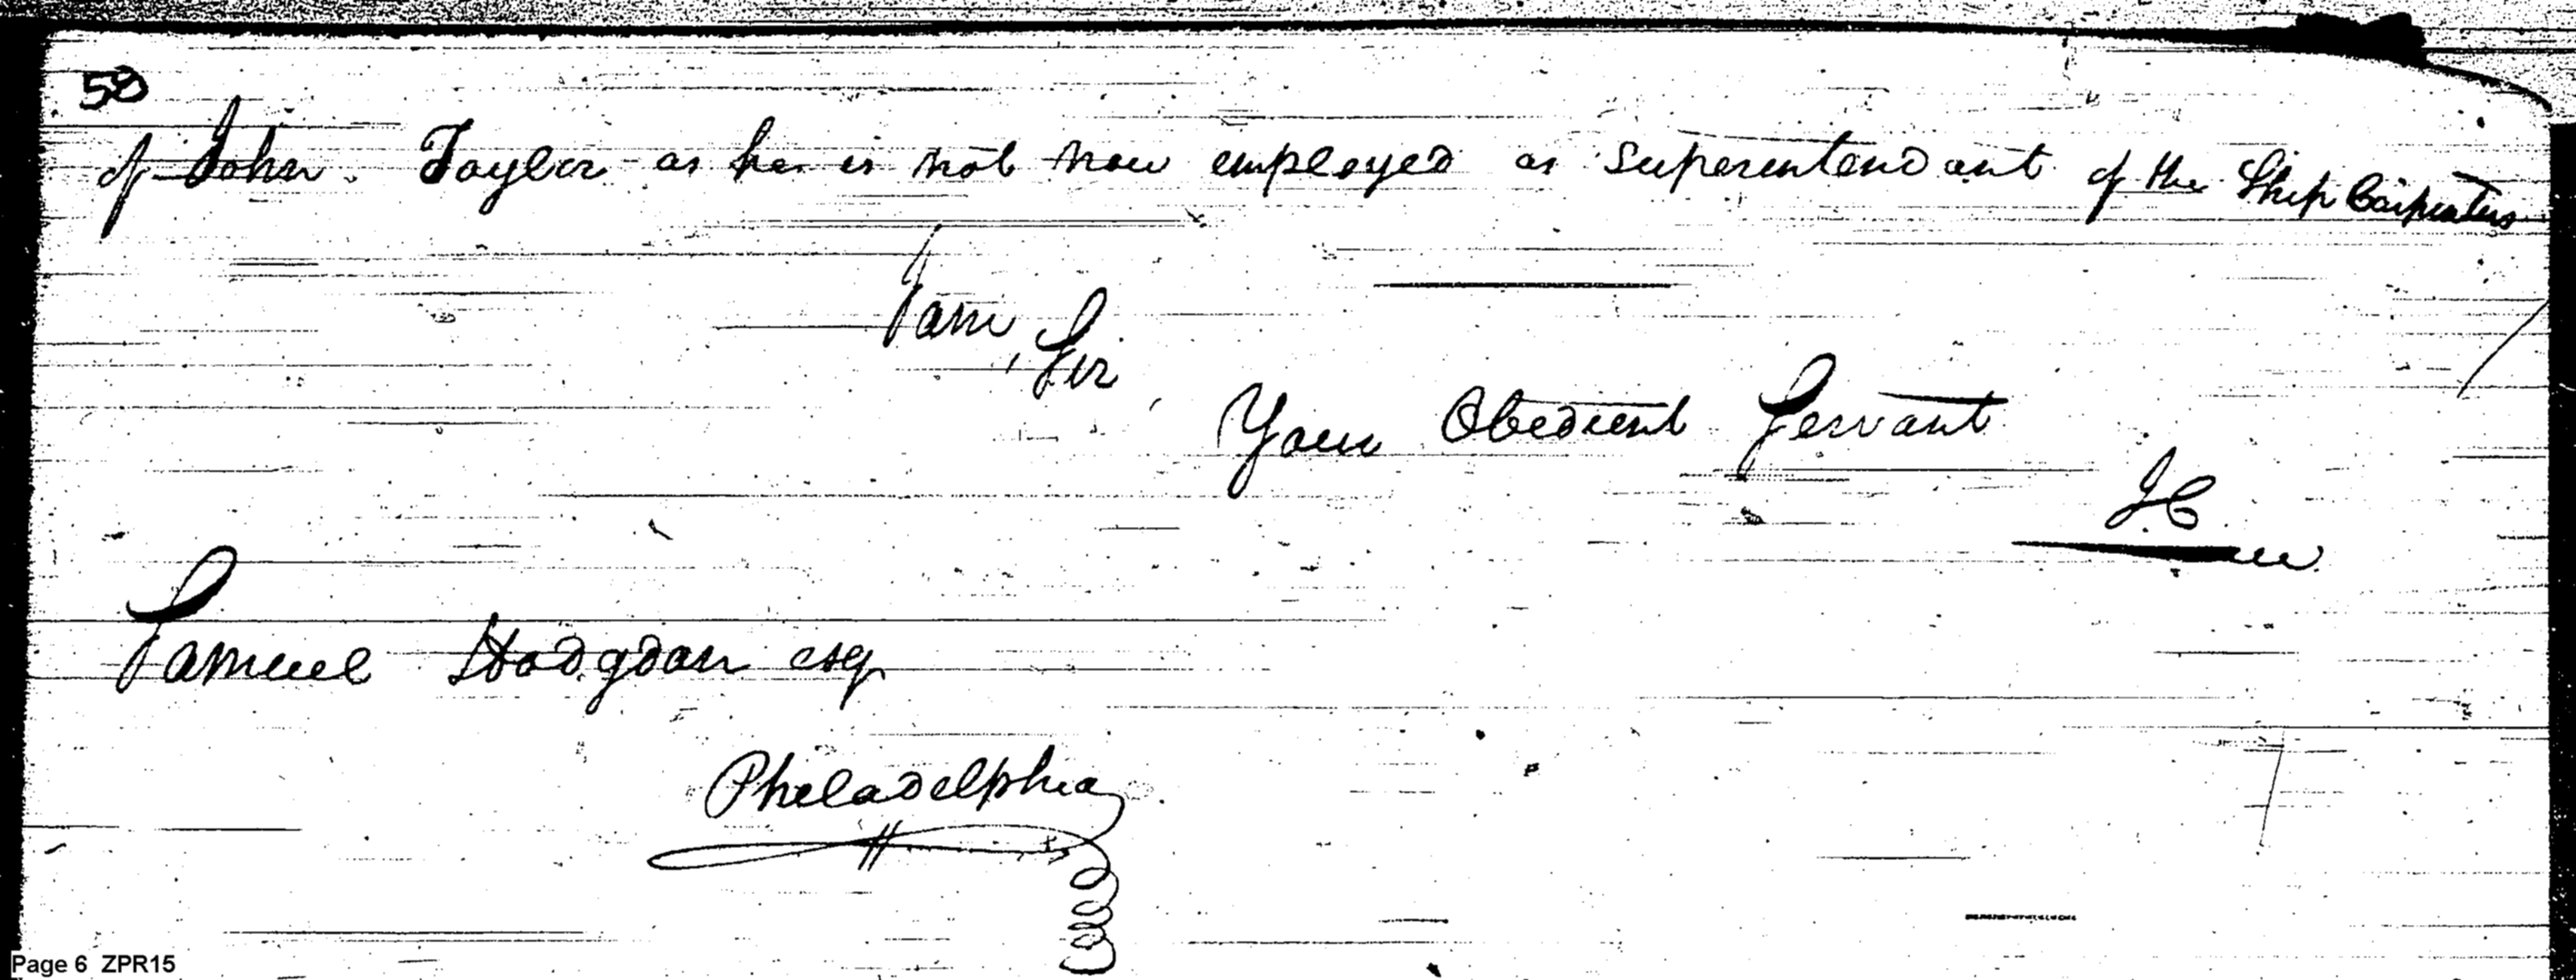 58
of John Taylor as he is not now employed as Superintendant of the Ship Carpenters
I am
Sir
Your Obedient Servant
Samuel Hodgdon esq
Philadelphia
Page 6 ZPR15